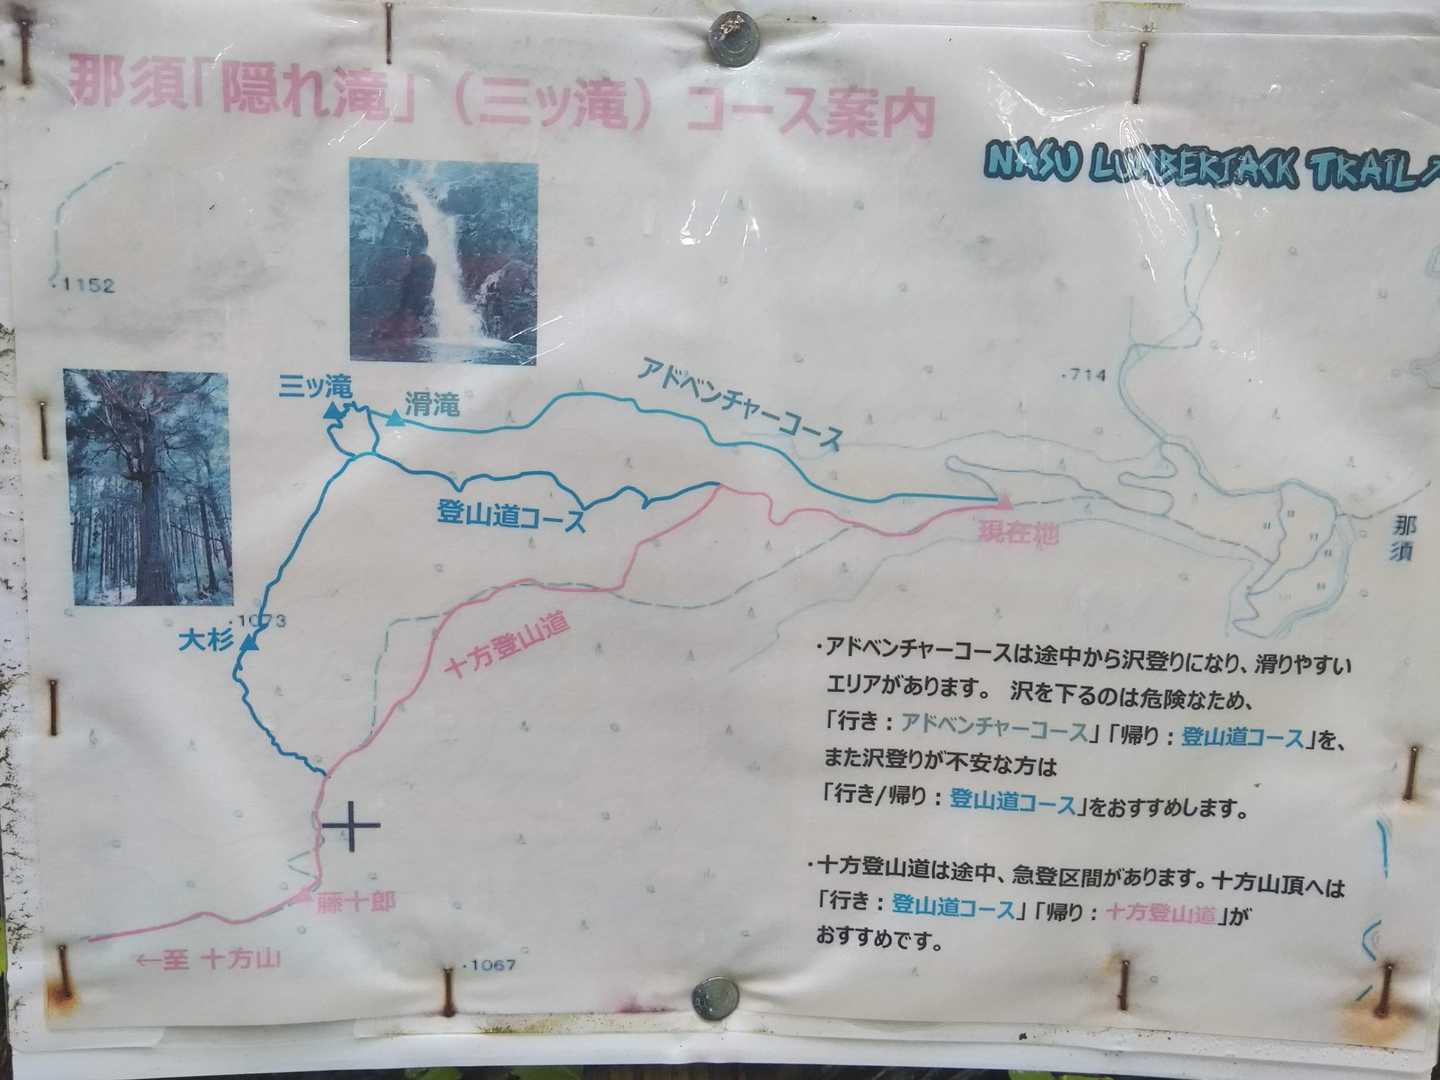 那須「隠れ滝」（三ッ滝）コース案内
NASU LUMBERJACK TRAIL
・1152
・714
三ッ滝
滑滝
アドベンチャーコース
登山道コース
現在地
那須
・1073
大杉
十方登山道
・アドベンチャーコースは途中から沢登りになり、滑りやすい
エリアがあります。 沢を下るのは危険なため、
「行き：アドベンチャーコース」「帰り：登山道コース」を、
また沢登りが不安な方は
「行き/帰り：登山道コース」をおすすめします。
・十方登山道は途中、急登区間があります。十方山頂へは
「行き：登山道コース」「帰り：十方登山道」が
おすすめです。
藤十郎
←至 十方山
・1067